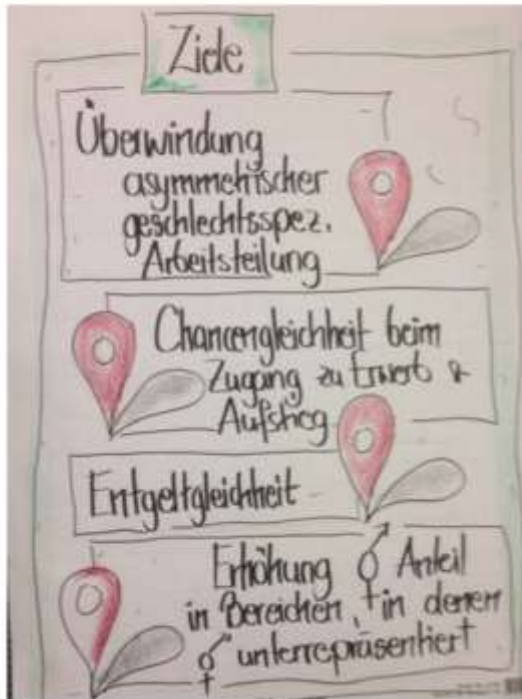 Ziele
Überwindung
asymmetrischer
geschlechtsspez.
Arbeitsteilung
Chancengleichheit beim
Zugang zu Erwerb &
Aufstieg
Entgeltgleichheit
Erhöhung ⚦ Anteil
in Bereichen, in denen
⚦ unterrepräsentiert